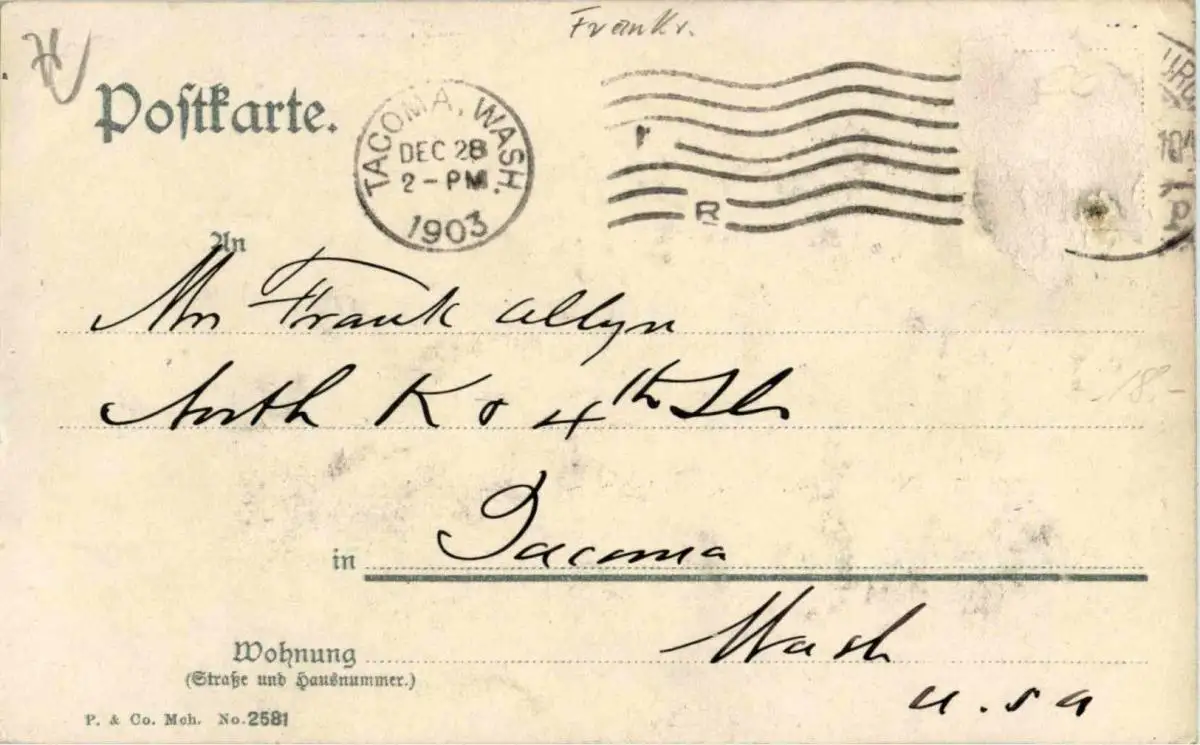 Frankr.
Postkarte.
TACOMA, WASH.
DEC 28
2 - PM
1903
R
An
Mr Frank Allyn
North K & 4th Sts
in Tacoma
Wash
Wohnung
(Straße und Hausnummer.)
U.S.A
P. & Co. Mch. No. 2581
18.-